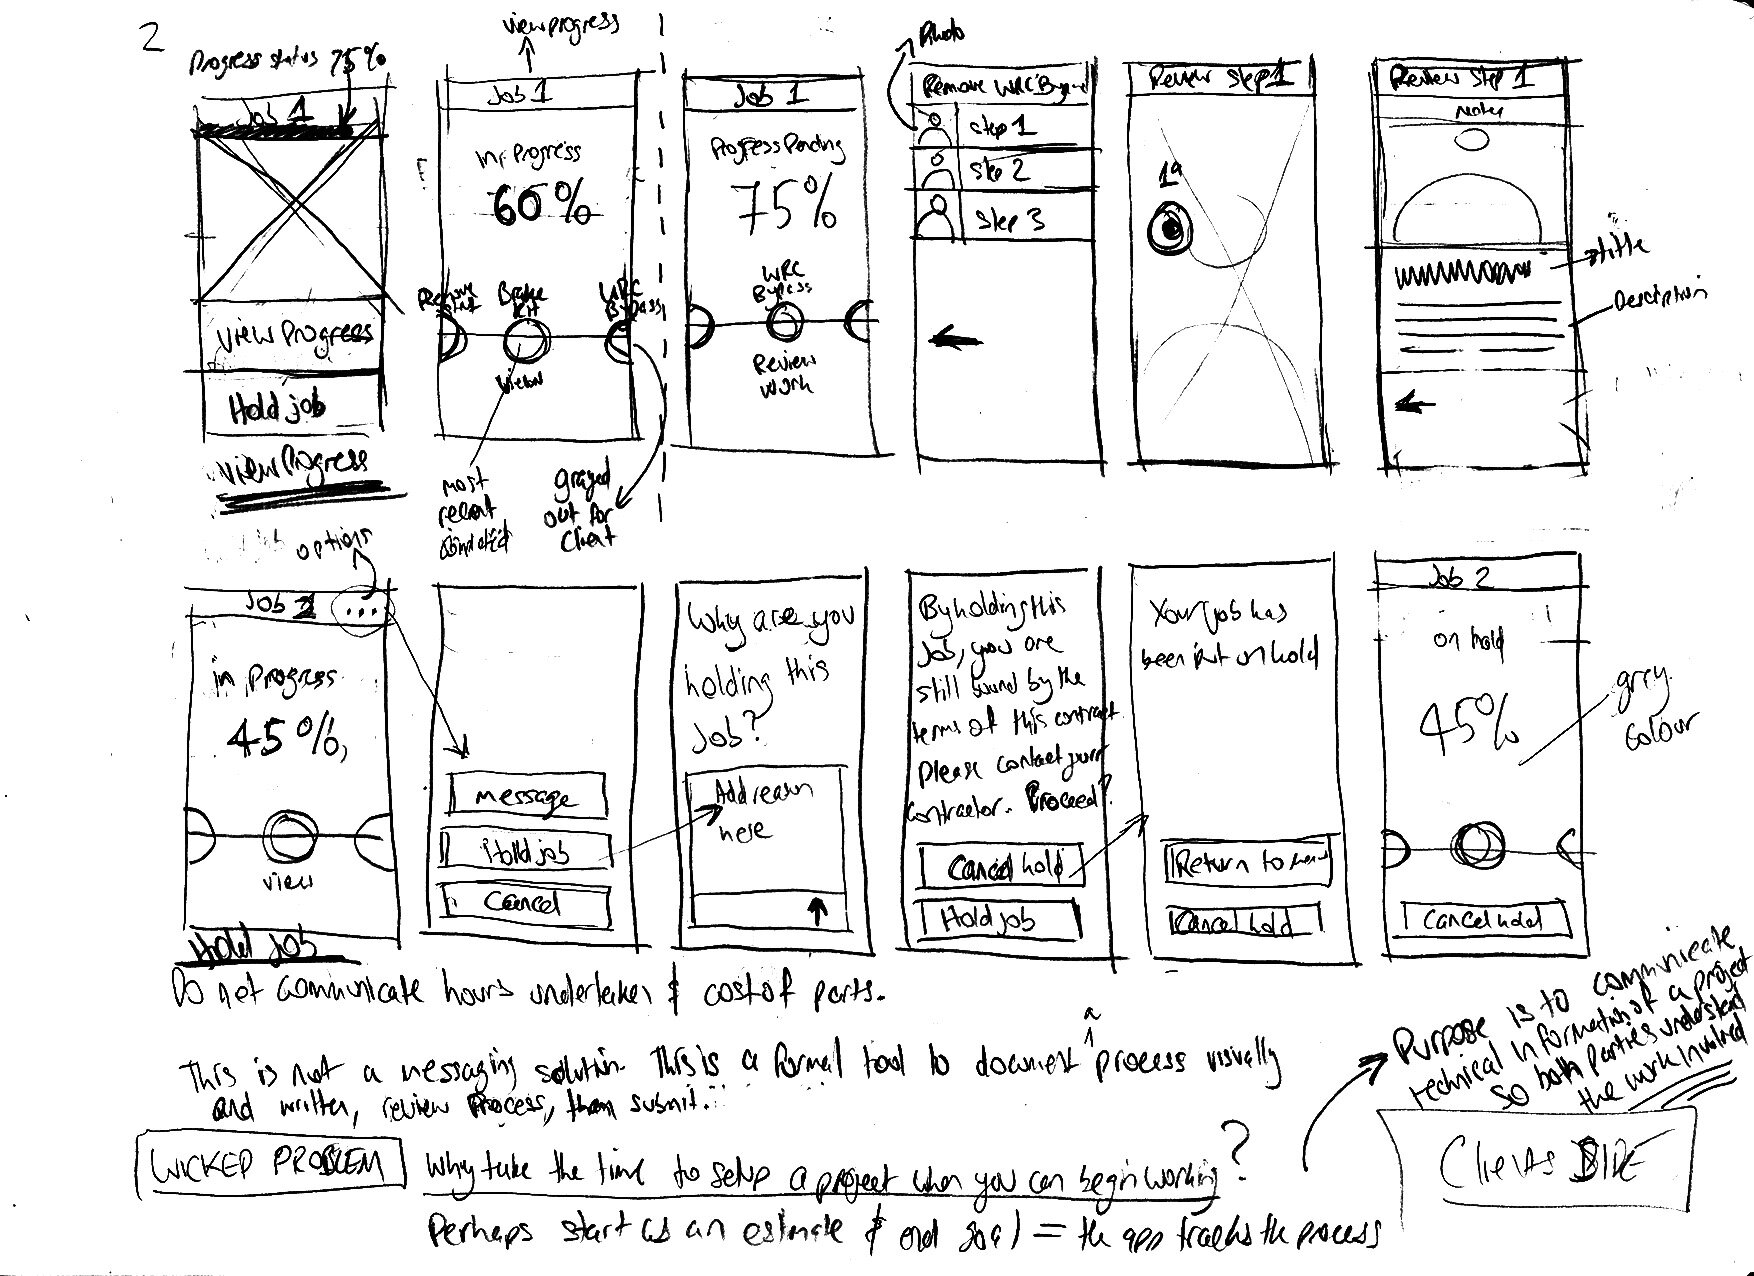 2
Progress status 75%
Job 1
View Progress
Hold job
View Progress
view progress
Job 1
In Progress
60%
Remove
Brake
Kit
WRC
Bypass
View
most
recent
grayed
out for
client
Job 1
Progress Pending
75%
WRC
Bypass
Review
work
Photo
Remove WRC Bypass
Step 1
Step 2
Step 3
Review Step 1
1a
Review Step 1
Notes
title
Description
options
Job 2
...
in Progress
45%
view
Hold job
message
Hold job
Cancel
Why are you
holding this
Job?
Add reason
here
By holding this
Job, you are
still bound by the
terms of this contract
Please contact your
contractor. Proceed?
Cancel hold
Hold job
Your job has
been put on hold
Return to
Cancel hold
Job 2
on hold
45%
grey
colour
Cancel hold
Do not communicate hours undertaken & cost of parts.
This is not a messaging solution. This is a formal tool to document a process visually
and written, review process, then submit.
WICKED PROBLEM
Why take the time to setup a project when you can begin working?
Perhaps start as an estimate & end goal = the app tracks the process
Purpose is to communicate
technical information of a project
so both parties understand
the work involved
Clients SIDE